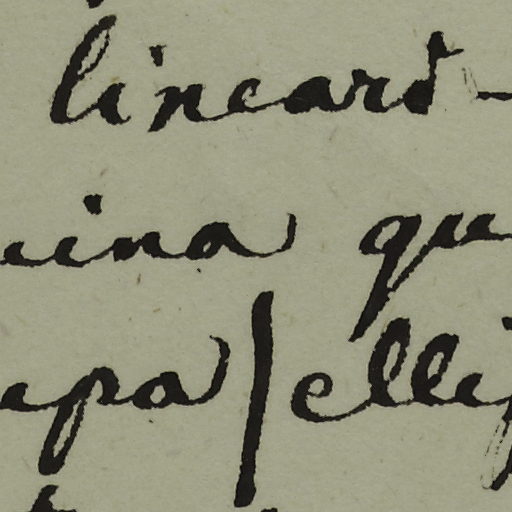 lineard-
uina qu
apa/elli